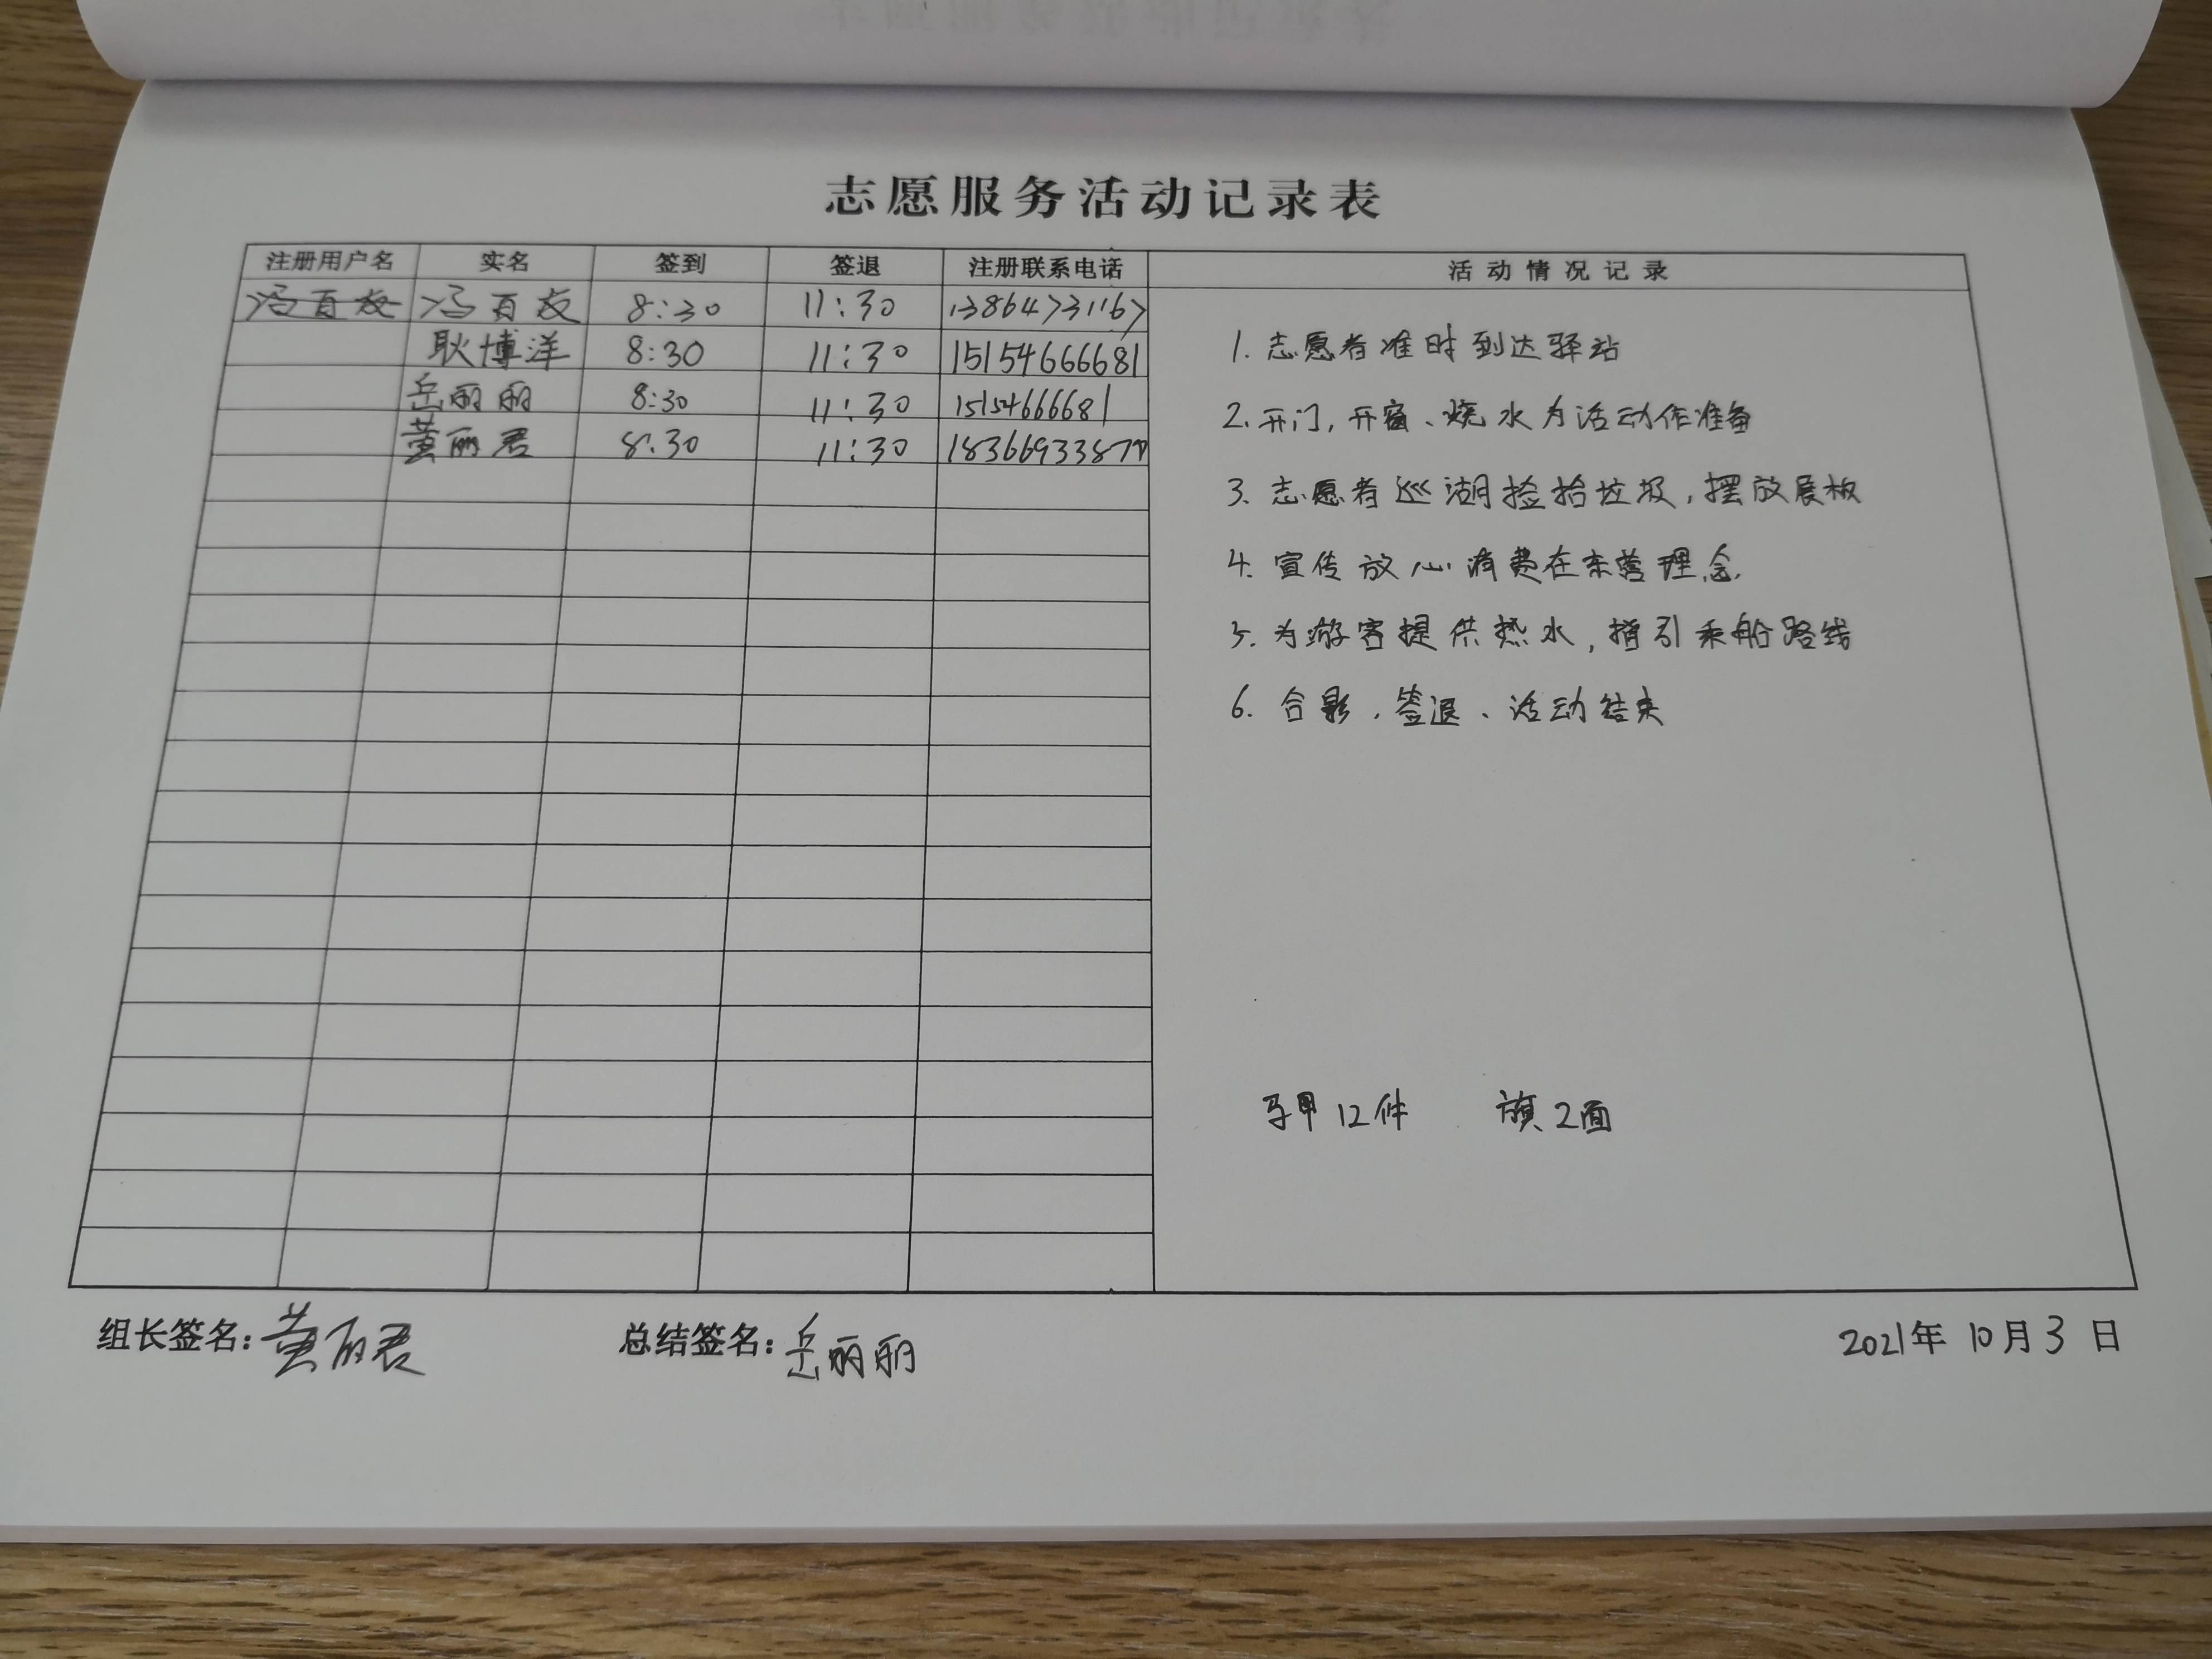 志愿服务活动记录表
注册用户名 实名 签到 签退 注册联系电话 活动情况记录
冯百友 冯百友 8:30 11:30 13864731167
耿博洋 8:30 11:30 15154666681
岳丽丽 8:30 11:30 1515466681
黄丽君 8:30 11:30
1. 志愿者准时到达驿站
2. 开门，开窗、烧水为活动作准备
3. 志愿者巡湖捡拾垃圾，摆放展板
4. 宣传放心消费在东营理念.
5. 为游客提供热水，指引乘船路线
6. 合影、签退、活动结束
马甲12件 旗2面
组长签名：黄丽君 总结签名：岳丽丽 2021年10月3日